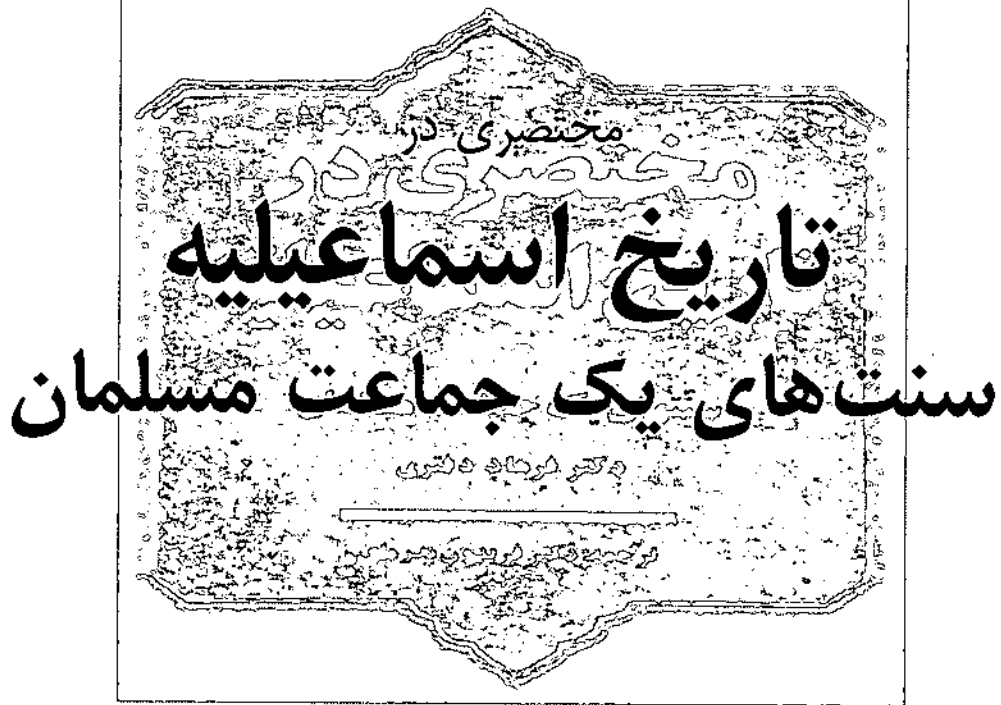 مختصری در
مختصری در
تاریخ اسماعیلیه
سنت‌های یک جماعت مسلمان
دکتر فرهاد دفتری